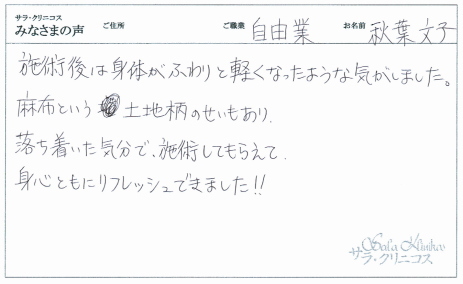 サラ・クリニコス
みなさまの声 ご住所 ご職業 自由業 お名前 秋葉文子
施術後は身体がふわりと軽くなったような気がしました。
麻布という土地柄のせいもあり、
落ち着いた気分で、施術してもらえて、
身心ともにリフレッシュできました!!
Sala Klinikos
サラ・クリニコス